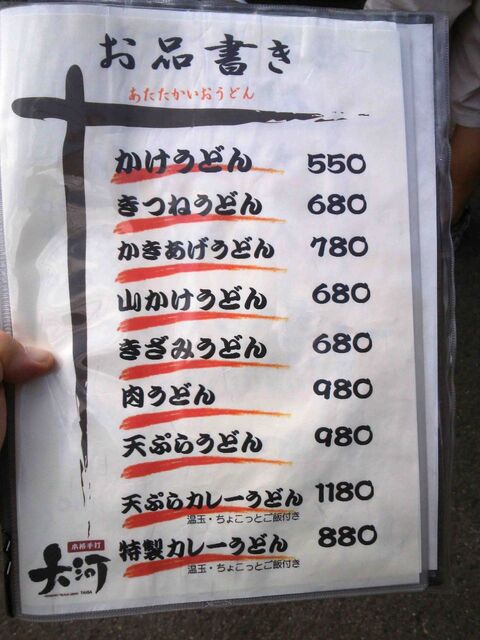 お品書き
あたたかいおうどん
かけうどん 550
きつねうどん 680
かきあげうどん 780
山かけうどん 680
きざみうどん 680
肉うどん 980
天ぷらうどん 980
天ぷらカレーうどん 1180
温玉・ちょこっとご飯付き
特製カレーうどん 880
温玉・ちょこっとご飯付き
本格手打
大河